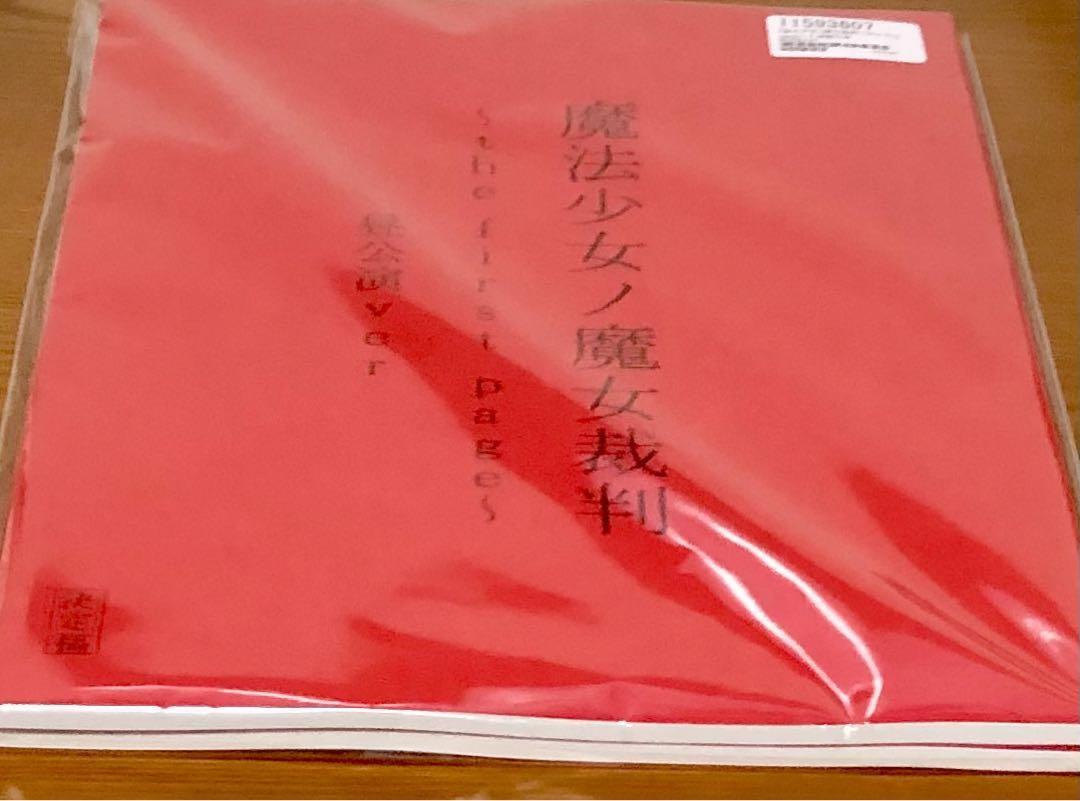 魔法少女ノ魔女裁判
～the first page～
昼公演ver
決定稿
11593807